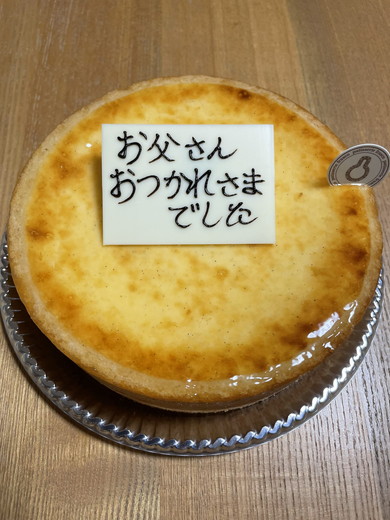 お父さん
おつかれさま
でした